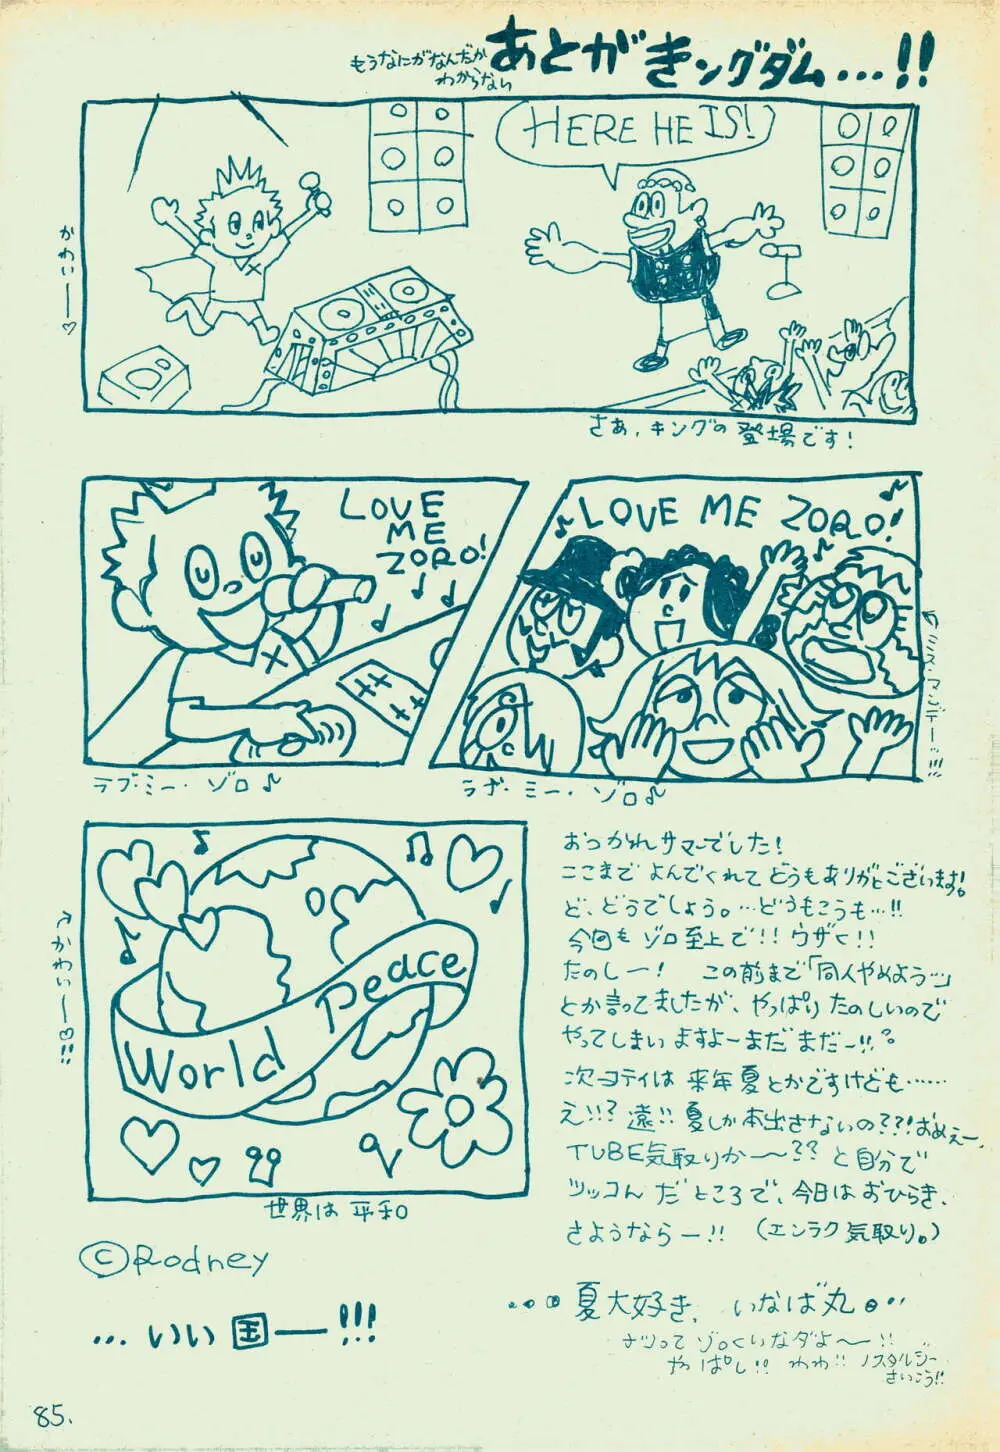 もうなにがなんだか
わからない
あとがきングダム…!!
HERE HE IS!
さあ、キングの登場です!
LOVE
ME
ZORO!
ラブ・ミー・ゾロ♪
LOVE ME ZORO!
ラブ・ミー・ゾロ♪
World Peace
世界は平和
おつかれサマーでした!
ここまでよんでくれてどうもありがとございます!。
ど、どうでしょう。…どうもこうも…!!
今回もゾロ至上で!!ウザく!!
たのしー! この前まで「同人やめようっ」
とか言ってましたが、やっぱりたのしいので
やってしまいますよーまだまだー!!?
次ヨテイは来年夏とかですけども……
え!!?遠!!夏しか本出さないの??!おめえー、
TUBE気取りか〜??と自分で
ツッコんだところで、今日はおひらき、
さようならー!!(エンラク気取り。)
©Rodney
…いい国ー!!!
夏大好き、いなば丸
ナツってゾロくいなダよ〜!!
やっぱし!! わわ!! ノスタルジー
さいこう!!
85.